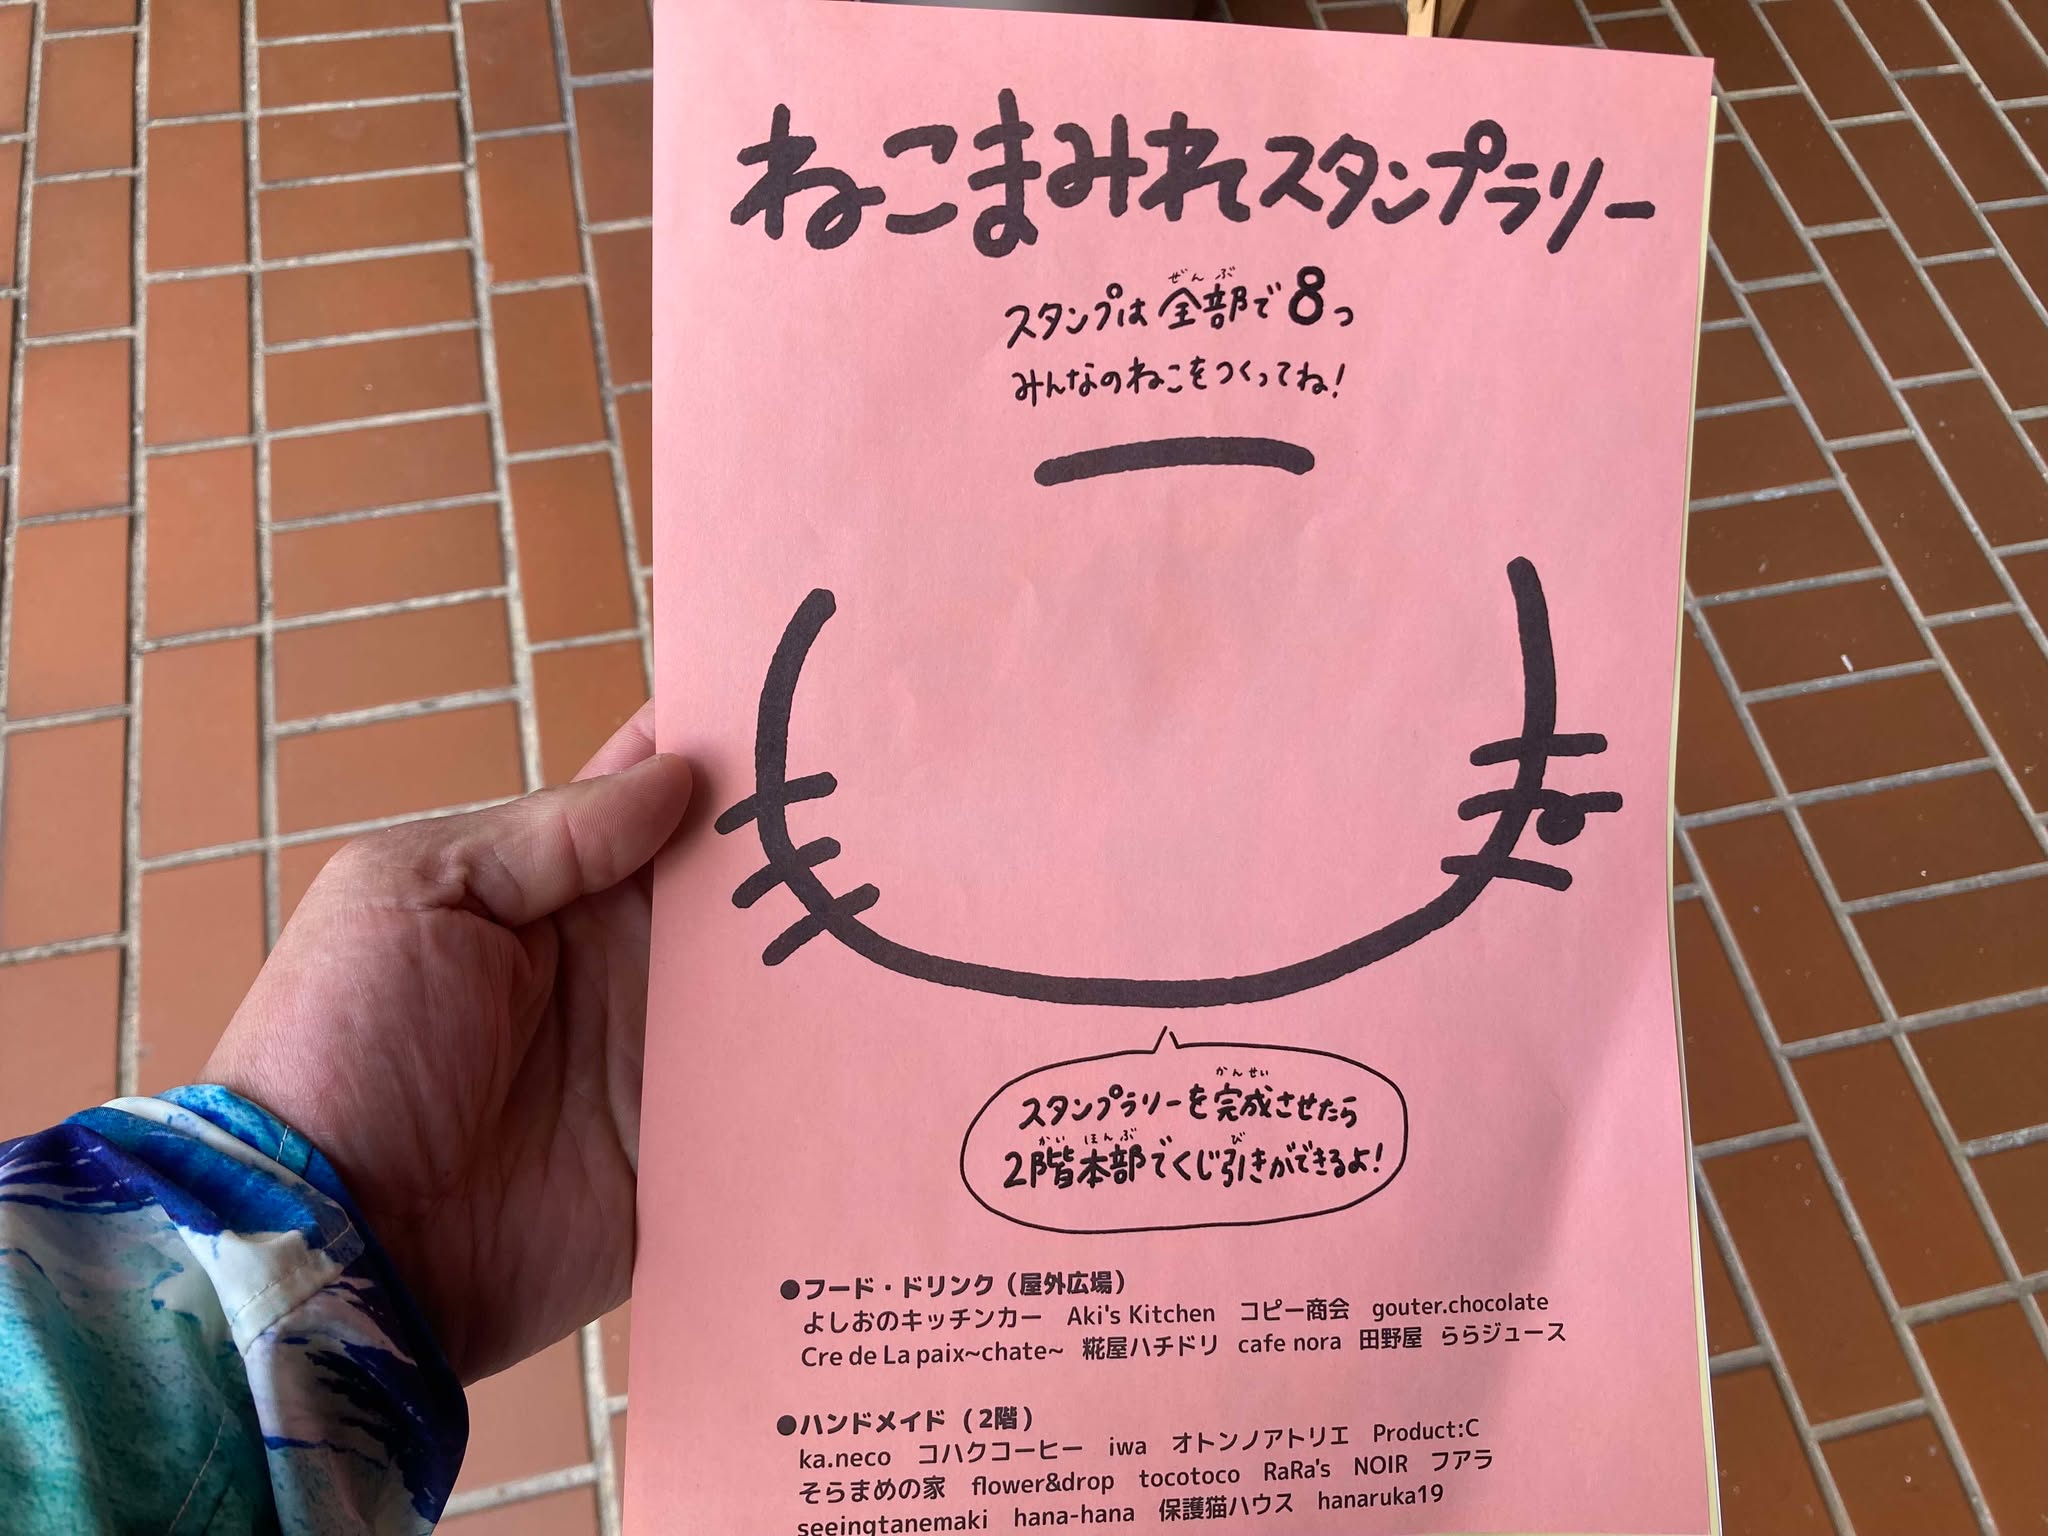 ねこまみれスタンプラリー
スタンプは全部で8つ
ぜんぶ
みんなのねこをつくってね!
スタンプラリーを完成させたら
かんせい
2階本部でくじ引きができるよ!
かい ほんぶ び
●フード・ドリンク(屋外広場)
よしおのキッチンカー Aki's Kitchen コピー商会 gouter.chocolate
Cre de La paix~chate~ 糀屋ハチドリ cafe nora 田野屋 ららジュース
●ハンドメイド(2階)
ka.neco コハクコーヒー iwa オトンノアトリエ Product:C
そらまめの家 flower&drop tocotoco RaRa's NOIR フアラ
seeingtanemaki hana-hana 保護猫ハウス hanaruka19